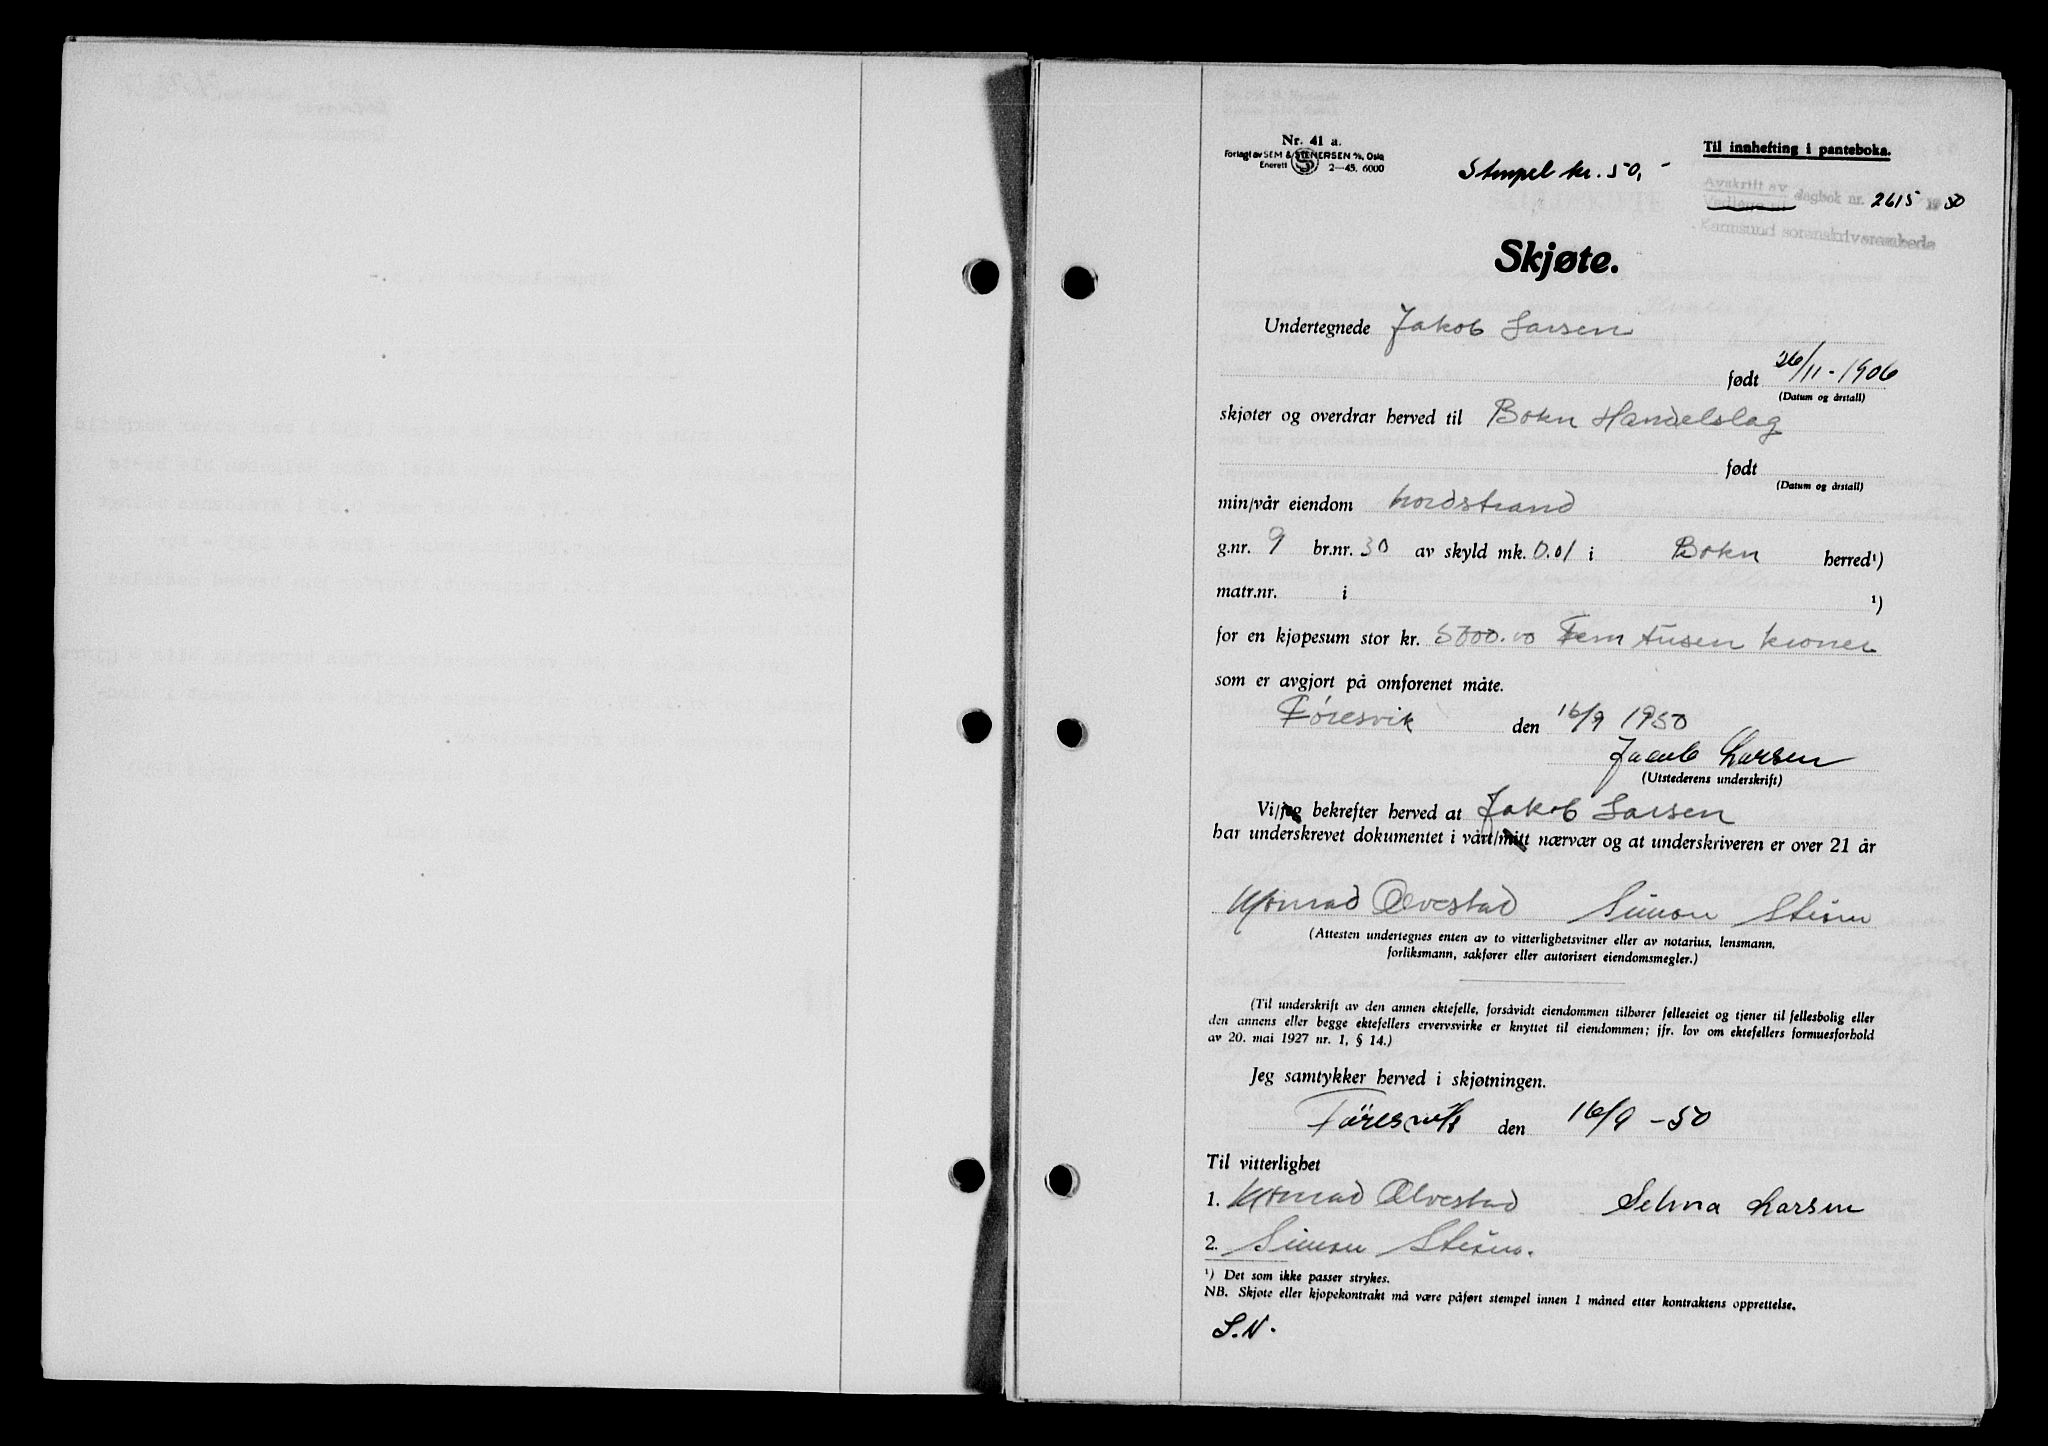 Nr. 41 a.
Forlagt av SEM & STENERSEN A/S, Oslo
Enerett S 2—45. 6000
Til innhefting i panteboka.
Stempel kr. 50,-
Avskrift av
Vedlegg til dagbok nr. 2615 1950
Karmsund sorenskriverembede
Skjøte.
Undertegnede Jakob Larsen
født 26/11-1906
(Datum og årstall)
skjøter og overdrar herved til Bokn Handelslag
født
(Datum og årstall)
min/vår eiendom Nordstrand
g.nr. 9 br.nr. 30 av skyld mk. 0.01 i Bokn herred¹)
matr.nr. i ¹)
for en kjøpesum stor kr. 5000.00 Fem tusen kroner
som er avgjort på omforenet måte.
Føresvik den 16/9 1950
Jacob Larsen
(Utstederens underskrift)
Vi/jeg bekrefter herved at Jakob Larsen
har underskrevet dokumentet i vårt/mitt nærvær og at underskriveren er over 21 år
Konrad Alvestad Simon
(Attesten undertegnes enten av to vitterlighetsvitner eller av notarius, lensmann,
forliksmann, sakfører eller autorisert eiendomsmegler.)
(Til underskrift av den annen ektefelle, forsåvidt eiendommen tilhører felleseiet og tjener til fellesbolig eller
den annens eller begge ektefellers ervervsvirke er knyttet til eiendommen; jfr. lov om ektefellers formuesforhold
av 20. mai 1927 nr. 1, § 14.)
Jeg samtykker herved i skjøtningen.
Føresvik den 16/9-50
Til vitterlighet
1. Konrad Alvestad Selma Larsen
2. Simon
¹) Det som ikke passer strykes.
NB. Skjøte eller kjøpekontrakt må være påført stempel innen 1 måned etter kontraktens opprettelse.
S.N.